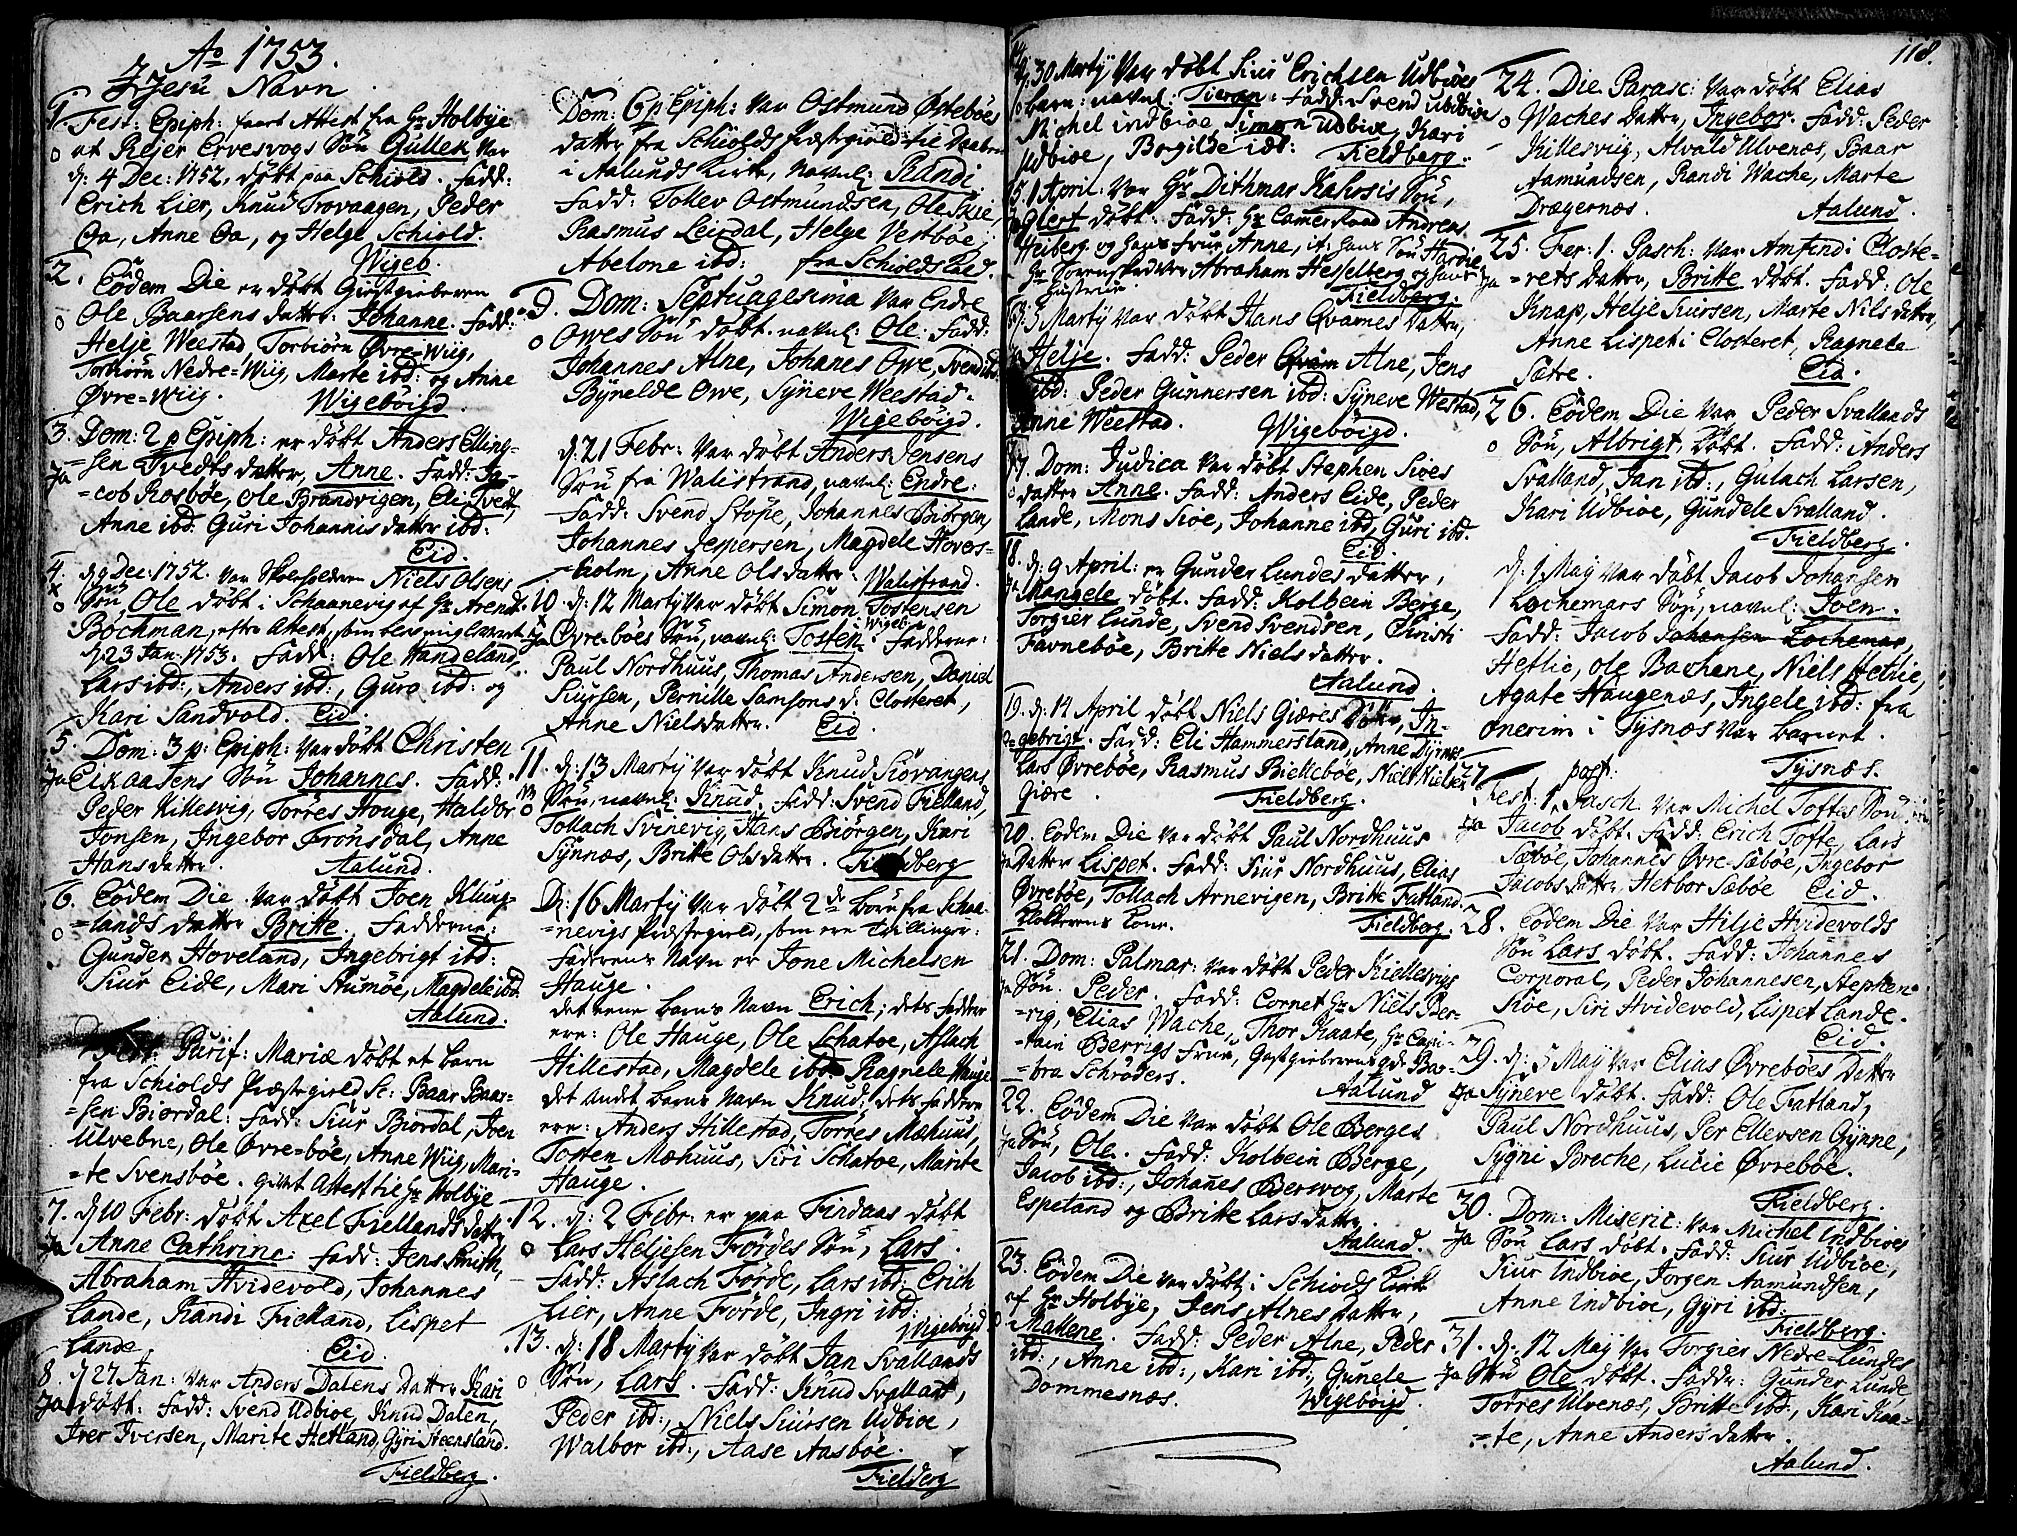 Ao 1753.
J Jesu Navn
1 Fest: Epiph: faaet Attest fra Hr Holbye
o at Rejer Ervesvogs Søn Gullek var
d: 4 Dec: 1752, døbt paa Schiold. Fadd:
Erich Lier, Knud Trovaagen, Peder
Oa, Anne Oa, og Helge Schiold.
Wigeb.
2. Eodem Die er døbt Giestgieberen
o Ole Baarsens datter: Johanne. Fadd:
Helje Weestad Torbiørn Øvre-Wiig,
Torbiørn Nedre-Wiig, Marte ibd: og Anne
Øvre-Wiig. Wigebøigd.
3. Dom: 2 p Epiph: er døbt Anders Elling-
-sen Tvedts datter, Anne. Fadd: Ja-
Ja -cob Rosbøe, Ole Brandvigen, Eli Tvedt,
Anne ibd: Guri Johannis datter ibd:
Eid.
4. d 9 Dec: 1752. var Skoeholderen Niels Olsens
x o Søn Ole døbt i Schaanevig af Hr Arendt
Bøchman, efter Attest, som blev mig leveret
d 23 Jan: 1753. Fadd: Ole Handeland,
Lars ibd:, Anders ibd:, Guro ibd: og
Kari Sandvold. Eid.
5. Dom: 3 p: Epiph: var døbt Christen
Ja Elkaasens Søn Johannes. Fadd:
Peder Killesvig, Torres Houge, Haldor
Jonsen, Ingebor Trønsdal, Anne
Hans datter. Aalund.
6. Eodem Die var døbt Joen Klung-
o -lands datter Britte. Fadderne:
Gunder Hoveland, Ingebrigt ibd:
Siur Eide, Mari Stumøe, Magdele ibd.
Aalund.
Fest: Purif: Mariæ døbt et barn
fra Schiolds Præstegield Sc: Baar Baar-
-sen Biordal: Fadd: Siur Biordal, Joen
Ulvebne, Ole Øvre-bøe, Anne Wiig, Mari-
-te Svensbøe. givet Attest til Hr Holbye
7. d 10 Febr: døbt Axel Fiellands datter
Ja Anne Cathrine. Fadd: Jens Smith,
Abraham Hvidevold, Johannes
Lande, Randi Fielland, Lispet
Lande Eid.
8. d 27 Jan: var Anders Dalens datter Kari
Ja døbt: Fadd: Svend Udbioe, Knud Dalen,
Iver Iversen, Marite Hetland, Gyri Steensland.
Fieldberg.
Dom: 6 p Epiph: var Ostmund Østebøes
datter fra Schiolds Præstegield til Daaben
i Aalunds Kirke, navnl: Randi.
Fadd: Tollev Ostmundsen, Ole Skie,
Rasmus Leirdal, Helge Vestbøe,
Abelone ibd: fra Schiolds Gield.
9. Dom: Septuagesima var Endre
o Owes Søn døbt. navnl: Ole. Fadd:
Johannes Alne, Johanes Owe, Svend ibd:
Bynelde Owe, Syneve Weestad.
Wigebøigd.
d: 21 Febr: var døbt Anders Jensens
Søn fra Walistrand, navnl: Endre:
Fadd: Svend Støpie, Johannes Biørgen,
Johannes Jespersen, Magdele Hoves-
-holm, Anne Ols datter. Walistrand.
10. d: 12 Martij var døbt Simon Tostensen
Ja Øvre-bøes Søn, navnl: Tosten. Fadderne:
Paul Nordhuus, Thomas Andersen, Daniel
Siursen, Pernille Samsons d: Closteret,
Anne Nielsdatter. Eid.
11. d: 13 Martij var døbt Knud Siovangens
o Søn, navnl: Knud. Fadd: Svend Fielland,
Tollach Svinevig, Hans Biørgen, Kari
Synnæs, Britte Olsdatter. Fieldberg
D: 16 Martij var døbt 2de børn fra Schaa-
-nevigs Præstegield, som ere Tvillinger:
Faderens Navn er Jone Michelsen
Hauge.
det eene barns Navn Erich; dets faddere
ere: Ole Hauge, Ole Schatoe, Aslach
Hillestad, Magdele ibd: Ragnele Hauge
det andet barns Navn Knud: dets faddere
ere: Anders Hillestad, Torres Mæhuus,
Tosten Mæhuus, Siri Schatoe, Marite
Hauge.
12. d: 2 Febr: er paa Firdaas døbt
o Lars Heljesen Førdes Søn, Lars.
Fadd: Aslach Førde, Lars ibd: Erich
Lier, Anne Førde, Ingri ibd:
Wigebøigd
13. d: 18 Martij var døbt Jan Svallands
o Søn, Lars. Fadd: Knud Svalland,
Peder ibd:, Niels Siursen Udbioe,
Walbor ibd:, Aase Aasbøe.
Fieldberg
118.
14. d: 30 Martij var døbt Siur Erichsen Udbioes
o barn: navnl: Fieran: Fadd: Svend Udbioe
Michel indbioe, Simon Udbioe, Kari
Udbioe, Borgilde ibd: Fieldberg.
15. 1 April: var Hr Dithmar Kahrsis Søn,
Glert døbt. Fadd: Hr Cammerraad Andreas
Heiberg og hans Frue Anne, it: hans Søn Hartvig
Hr Sorenskriver Abraham Hesselberg og hans
Hustrue. Fieldberg.
d: 5 Martij var døbt Hans Qvarnes datter,
Ja Helje. Fadd: Peder Alne, Jens
ibd: Peder Gunnersen ibd: Syneve Westad,
Anne Westad. Wigebøigd.
17. Dom: Judica var døbt Stephen Sioes
o datter Anne. Fadd: Anders Eide, Peder
Lande, Mons Sioe, Johanne ibd, Guri ibd.
Eid.
18. d: 9 April: er Gunder Lundes datter,
Ja Mangele døbt. Fadd: Kolbein Berge,
Torgier Lunde, Svend Svendsen, Christi
Favnebøe, Britte Niels datter.
Aalund.
19. d: 14 April døbt Niels Giæres datter, In-
-gebrigt. Fadd: Eli Hammersland, Anne Dyrnæs
Lars Øvrebøe, Rasmus Biellebøe, Niels Nielsen
Giære. Fieldberg.
20. Eodem Die var døbt Paul Nordhuus
Ja Datter Lispet. Fadd: Siur Nordhuus, Elias
Øvrebøe, Tollach Arnevigen, Britte Fatland.
Klokkerens Kone. Fieldberg.
21. Dom: Palmar: var døbt Peder Kiellesvigs
Ja Søn. Peder. Fadd: Cornet Hr Niels Ber-
-rig, Elias Wache, Thor Kaate, Hr Capi-
-tain Berrigs Frue, Gastgieberens gd: Bar-
-bra Schrøders. Aalund
22. Eodem Die var døbt Ole Berges
Ja Søn, Ole. Fadd: Kolbein Berge,
Jacob ibd:, Johanes Berwog, Marte
Espeland og Britte Lars datter.
Aalund.
23. Eodem Die var døbt i Schiolds Kirk
af Hr Holbye, Jens Alnes datter,
Mallene. Fadd: Peder Alne, Peder
ibd:, Anne ibd:, Kari ibd:, Gunele
Dommesnæs. Wigebøigd.
24. Die Parasc: var døbt Elias
o Waches datter, Ingebor. Fadd: Peder
Killesviig, Alvald Ulvenæs, Baar
Aamundsen, Randi Wache, Marte
Drægernæs. Aalund.
25. Fer: 1. Pasch: var Amfind i Closte-
Ja -rets datter, Britte døbt. Fadd: Ole
Knap, Helje Siursen, Marte Nils datter,
Anne Lispet i Closteret, Ragnele
Sætre. Eid.
26. Eodem Die var Peder Svallands
o Søn, Albrigt, døbt. Fadd: Anders
Svalland, Jan ibd:, Gulach Larsen,
Kari Udbioe, Gundele Svalland.
Fieldberg.
d: 1 Maj var døbt Jacob Johansen
Lochemars Søn, navnl: Joen.
Fadd: Jacob Johansen Lochemar,
Hetlie, Ole Bachene, Niels Hetlie,
Agate Haugenæs, Ingele ibd: fra
Onerim i Tysnæs var barnet.
Tysnæs.
27. Fest: 1. post. Pasch. var Michel Toftes Søn
Ja Jacob døbt. Fadd: Erich Tofte, Lars
Sæbøe, Johannes Øvre-Sæbøe, Ingebor
Jacobs datter, Herbor Sæbøe Eid.
28. Eodem Die var Hilje Hvidevolds
Søn Lars døbt. Fadd: Johannes
Corporal, Peder Johannesen, Stephen
Sioe, Siri Hvidevold, Lispet Lande.
Eid.
29. d: 5 Maij var Elias Øvrebøes datter
Ja Syneve døbt. Fadd: Ole Fatland,
Paul Nordhuus, Per Ellevsen Gynne,
Sygni Breche, Lucie Øvrebøe.
Fieldberg.
30. Dom: Miseric: var Michel Indbioes
Ja Søn Lars døbt. Fadd: Siur Udbioe,
Siur Indbioe, Jorgen Aamundsen,
Anne Indbioe, Gyri ibd:
Fieldberg.
31. d: 12 Maij var Torgier Nedre-Lundes
Ja Søn Ole døbt. Fadder: Gunder Lunde,
Torres Ulvenæs, Britte ibd:, Kari Kaa-
-te, Anne Anders datter.
Aalund.